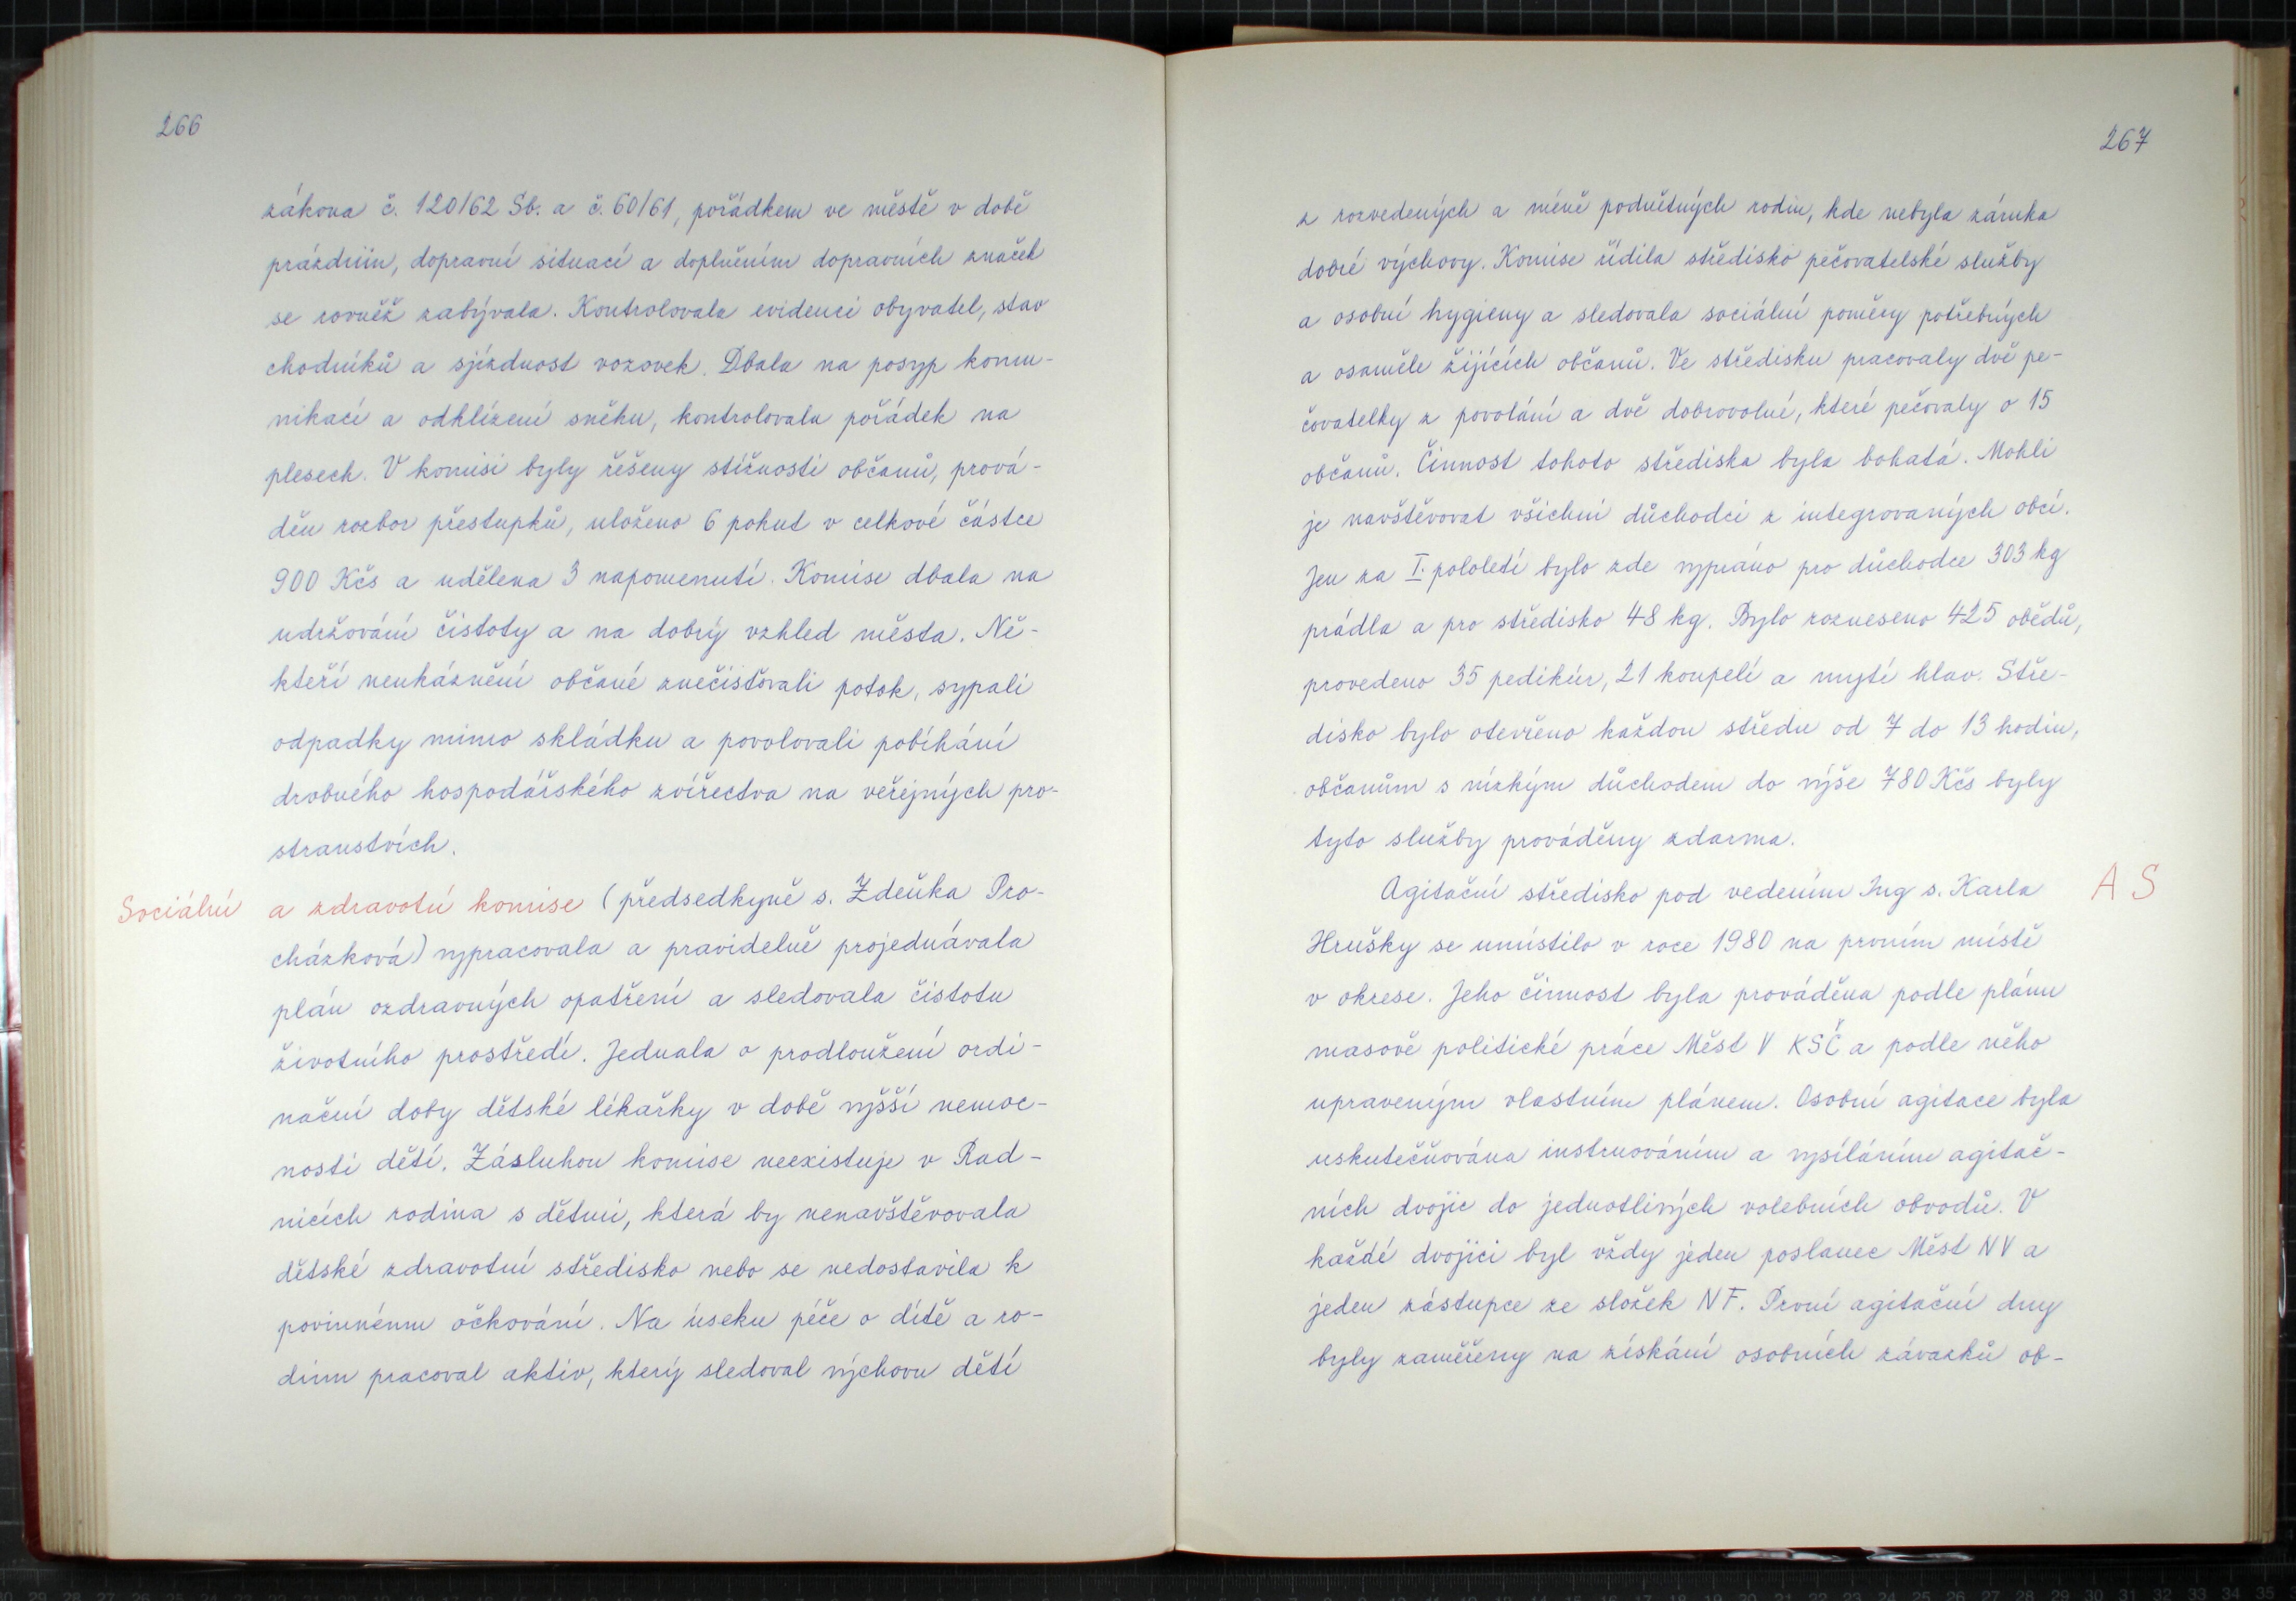 266
zákona č. 120/62 Sb. a č. 60/61, pořádkem ve městě v době
prázdnin, dopravní situací a doplněním dopravních značek
se rovněž zabývala. Kontrolovala evidenci obyvatel, stav
chodníků a sjízdnost vozovek. Dbala na posyp komu-
nikací a odklízení sněhu, kontrolovala pořádek na
plesech. V komisi byly řešeny stížnosti občanů, prová-
děn rozbor přestupků, uloženo 6 pokut v celkové částce
900 Kčs a udělena 3 napomenutí. Komise dbala na
udržování čistoty a na dobrý vzhled města. Ně-
kteří neukáznění občané znečisťovali potok, sypali
odpadky mimo skládku a povolovali pobíhání
drobného hospodářského zvířectva na veřejných pro-
stranstvích.
Sociální a zdravotní komise (předsedkyně s. Zdeňka Pro-
cházková) vypracovala a pravidelně projednávala
plán ozdravných opatření a sledovala čistotu
životního prostředí. Jednala o prodloužení ordi-
nační doby dětské lékařky v době vyšší nemoc-
nosti dětí. Zásluhou komise neexistuje v Rad-
nicích rodina s dětmi, která by nenavštěvovala
dětské zdravotní středisko nebo se nedostavila k
povinnému očkování. Na úseku péče o dítě a ro-
dinu pracoval aktiv, který sledoval výchovu dětí
267
z rozvedených a méně podnětných rodin, kde nebyla záruka
dobré výchovy. Komise řídila středisko pečovatelské služby
a osobní hygieny a sledovala sociální poměry potřebných
a osaměle žijících občanů. Ve středisku pracovaly dvě pe-
čovatelky z povolání a dvě dobrovolné, které pečovaly o 15
občanů. Činnost tohoto střediska byla bohatá. Mohli
je navštěvovat všichni důchodci z integrovaných obcí.
Jen za I. pololetí bylo zde vypráno pro důchodce 303 kg
prádla a pro středisko 48 kg. Bylo rozneseno 425 obědů,
provedeno 35 pedikúr, 21 koupelí a mytí hlav. Stře-
disko bylo otevřeno každou středu od 7 do 13 hodin,
občanům s nízkým důchodem do výše 780 Kčs byly
tyto služby prováděny zdarma.
Agitační středisko pod vedením Ing s. Karla A S
Hrušky se umístilo v roce 1980 na prvním místě
v okrese. Jeho činnost byla prováděna podle plánu
masově politické práce Měst V KSČ a podle něho
upraveným vlastním plánem. Osobní agitace byla
uskutečňována instruováním a vysíláním agitač-
ních dvojic do jednotlivých volebních obvodů. V
každé dvojici byl vždy jeden poslanec Měst NV a
jeden zástupce ze složek NF. První agitační dny
byly zaměřeny na získání osobních závazků ob-